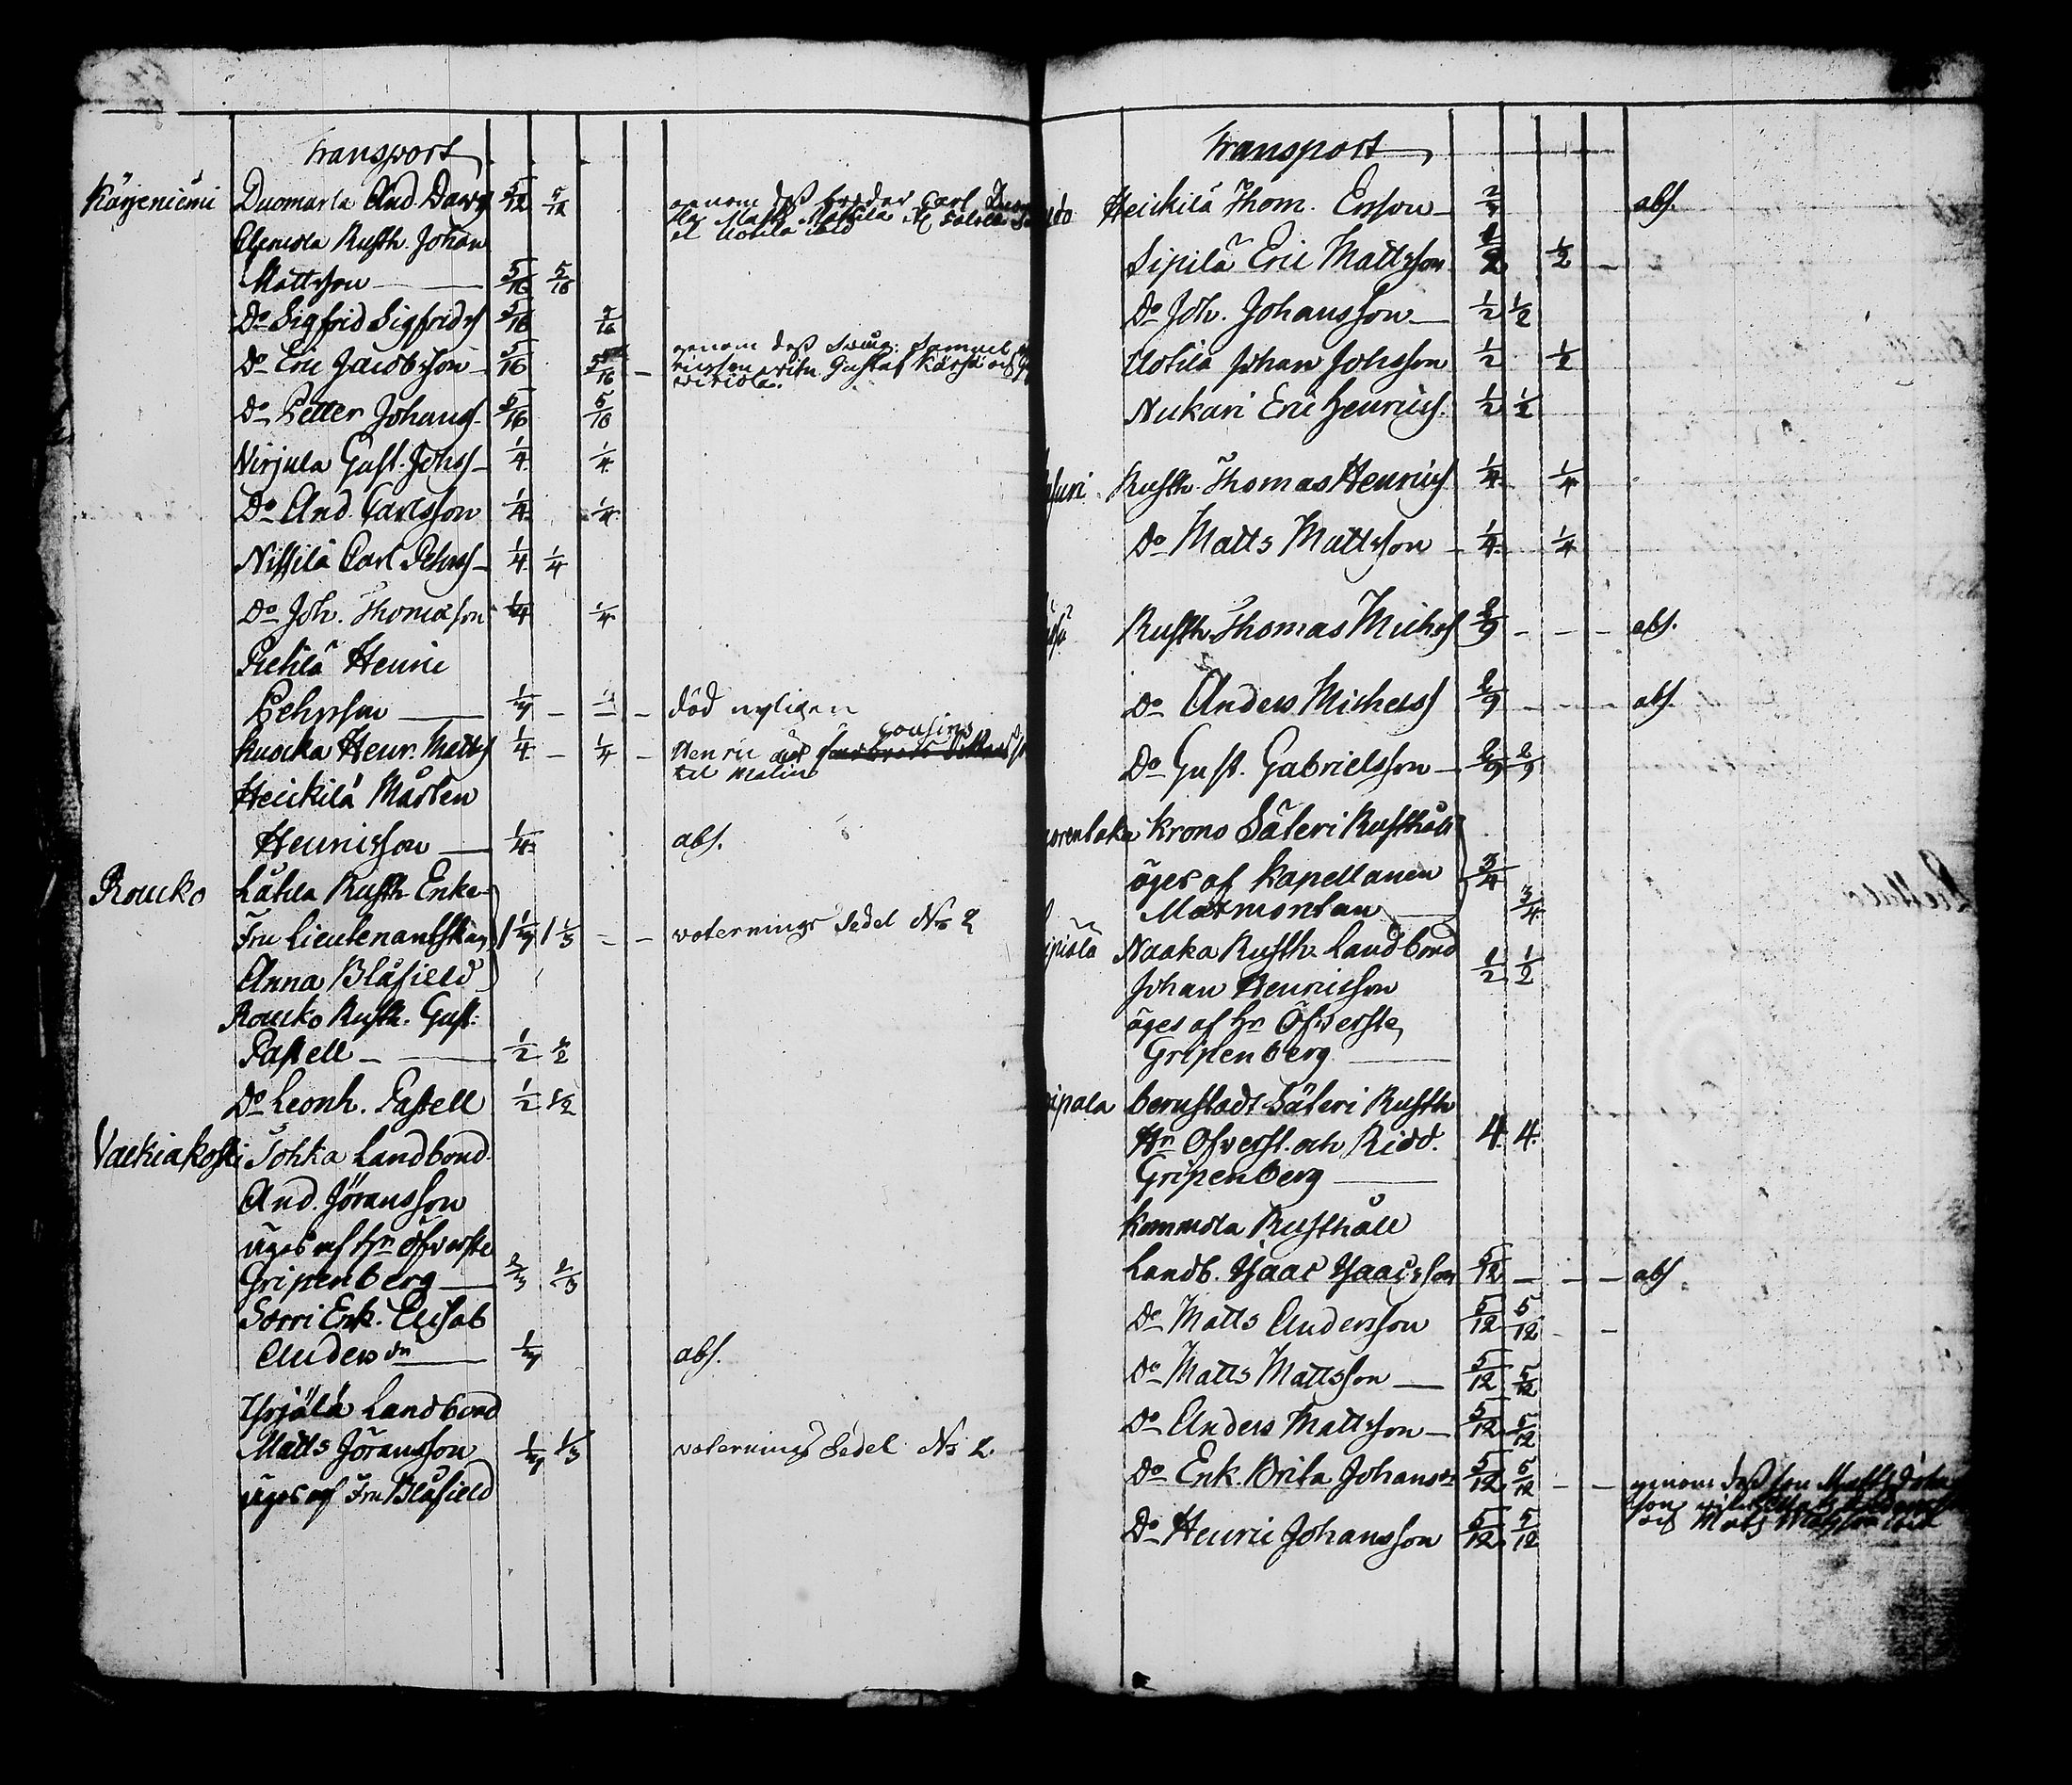 Transport
Kärjeniemi Duomarla And. Davids 5/12 5/12 genom deß broder Carl
Matts Mattila
Rusth. Johan
Mattsson 5/16 5/16
Do Sigfrid Sigfrids 5/16 5/16
Do Eric Jacobsson 5/16 5/16 genom deß Swåg. Samuel
witn. Gustaf Kärsä och
Do Petter Johans 5/16 5/16
Nirjula Gust. Johss 1/4 1/4
Do And. Carlsson 1/4 1/4
Nissilä Carl Pehrss 1/4 1/4
Do Joh. Thomasson 1/4 1/4
Pietilä Henric
Pehrsson 1/4 död nyligen
Kuocka Henr. Matts 1/4 1/4 Henric cousins
til Malin
Heickilä Mårten
Henricsson 1/4 abs.
Roucko Lahtla Rusth. Enke
Fru Lieutenantskan 1 1/3 1 1/3 voternings Sedel No 2
Anna Blåfield
Roucko Rusth. Gust.
Pastell 1/2 1/2
Do Leonh. Pastell 1/2 1/2
Valkiakoski Tohka Landbond.
And. Jöransson
äges af Hr Öfverste
Gripenberg 2/3 2/3
Sorri Enk. Elisab
Anders dr 1/3 abs.
Yrjölä Landbond
Matts Jöransson 1/3 1/3 voternings Sedel No 2
äges af Fru Blåfield
Transport
Heickilä Thom. Ersson abs.
Sipilä Eric Mattsson 1/2 1/2
Do Joh. Johansson 1/2 1/2
Uotila Johan Johsson 1/2 1/2
Nukari Eric Henrics. 1/2 1/2
Rusth. Thomas Henrics 1/4 1/4
Do Matts Mattsson 1/4 1/4
Rusth. Thomas Michels 2/9 abs.
Do Anders Michelss 2/9 abs.
Do Gust. Gabrielsson 2/9 2/9
Krono Säteri Rusthåll
äges af Kapellanen 3/4
Maxmontan 3/4
Naaka Rusth. Landbond
Johan Henricsson 1/2 1/2
äges af Hr Öfverste
Gripenberg
Bernstads Säteri Rusth
Hr Öfverst. och Ridd. 4 4
Gripenberg
Kemmola Rusthåll
Landb. Isaac Isaacsson 5/12 abs
Do Matts Andersson 5/12 5/12
Do Matts Mattsson 5/12 5/12
Do Anders Mattsson 5/12 5/12
Do Enk. Brita Johans dr 5/12 5/12 genom deß son Matts
Do Henric Johansson 5/12 5/12